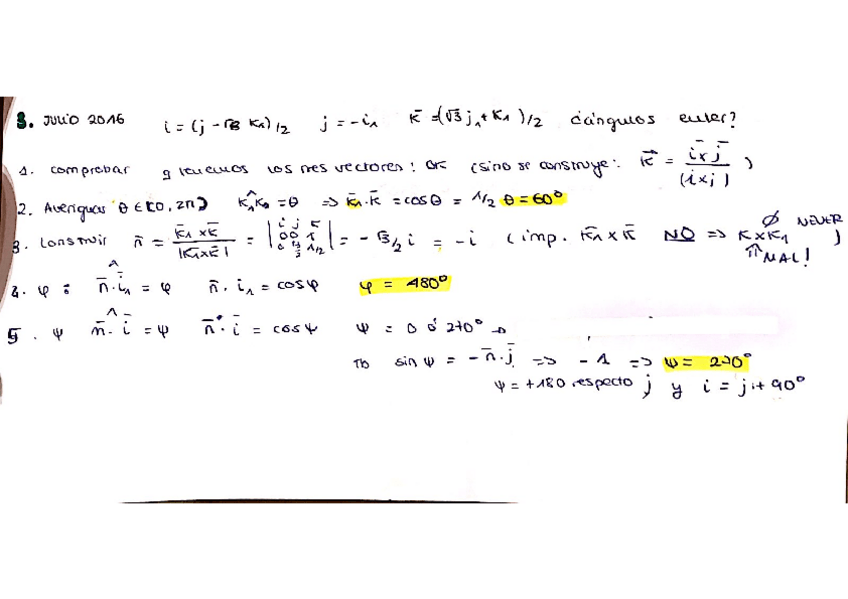 3. JULIO 2016 i = (j - √3 k₁)/2 j = -i₁ k̄ = (√3 j₁ + k₁)/2 ¿ángulos euler?
1. comprobar q tenemos los tres vectores: OK (sino se construye: k̄ = i̅xj̅ / (ixj) )
2. Averiguar θ ∈ [0, 2π) k₁^k₀ = θ => k̄₁·k̄ = cosθ = 1/2 θ = 60°
3. Construir n̄ = k̄₁xk̄ / |k̄₁xk̄| = | | = -√3/2 i = -i (imp. k̄₁xk̄ NO => kxk₁ Ø NEVER )
MAL!
4. φ: n̄·ī₁ = φ n̄·i₁ = cosφ φ = 180°
5. ψ n̄·ī = ψ n̄·ī = cosψ ψ = 0 ó 270°
Tb sin ψ = -n̄·j̄ => -1 => ψ = 270°
ψ = +180 respecto j y i = j + 90°